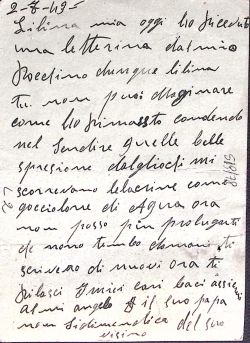 2-8-49-
Lilina mia oggi ho ricevuto
una letterina dal mio
dunque lilina
tu non puoi Imaginare
come ho rimasto
nel sendire quelle belle
spresione mi
scorrevano le lacrime come
gocciolone di Aqua ora
non posso più prolugarti
domani ti
scrivero di nuovi ora ti
rilasci I mici cari baci assieme
al mi angelo il suo papa
non si dimendica del suo
visino